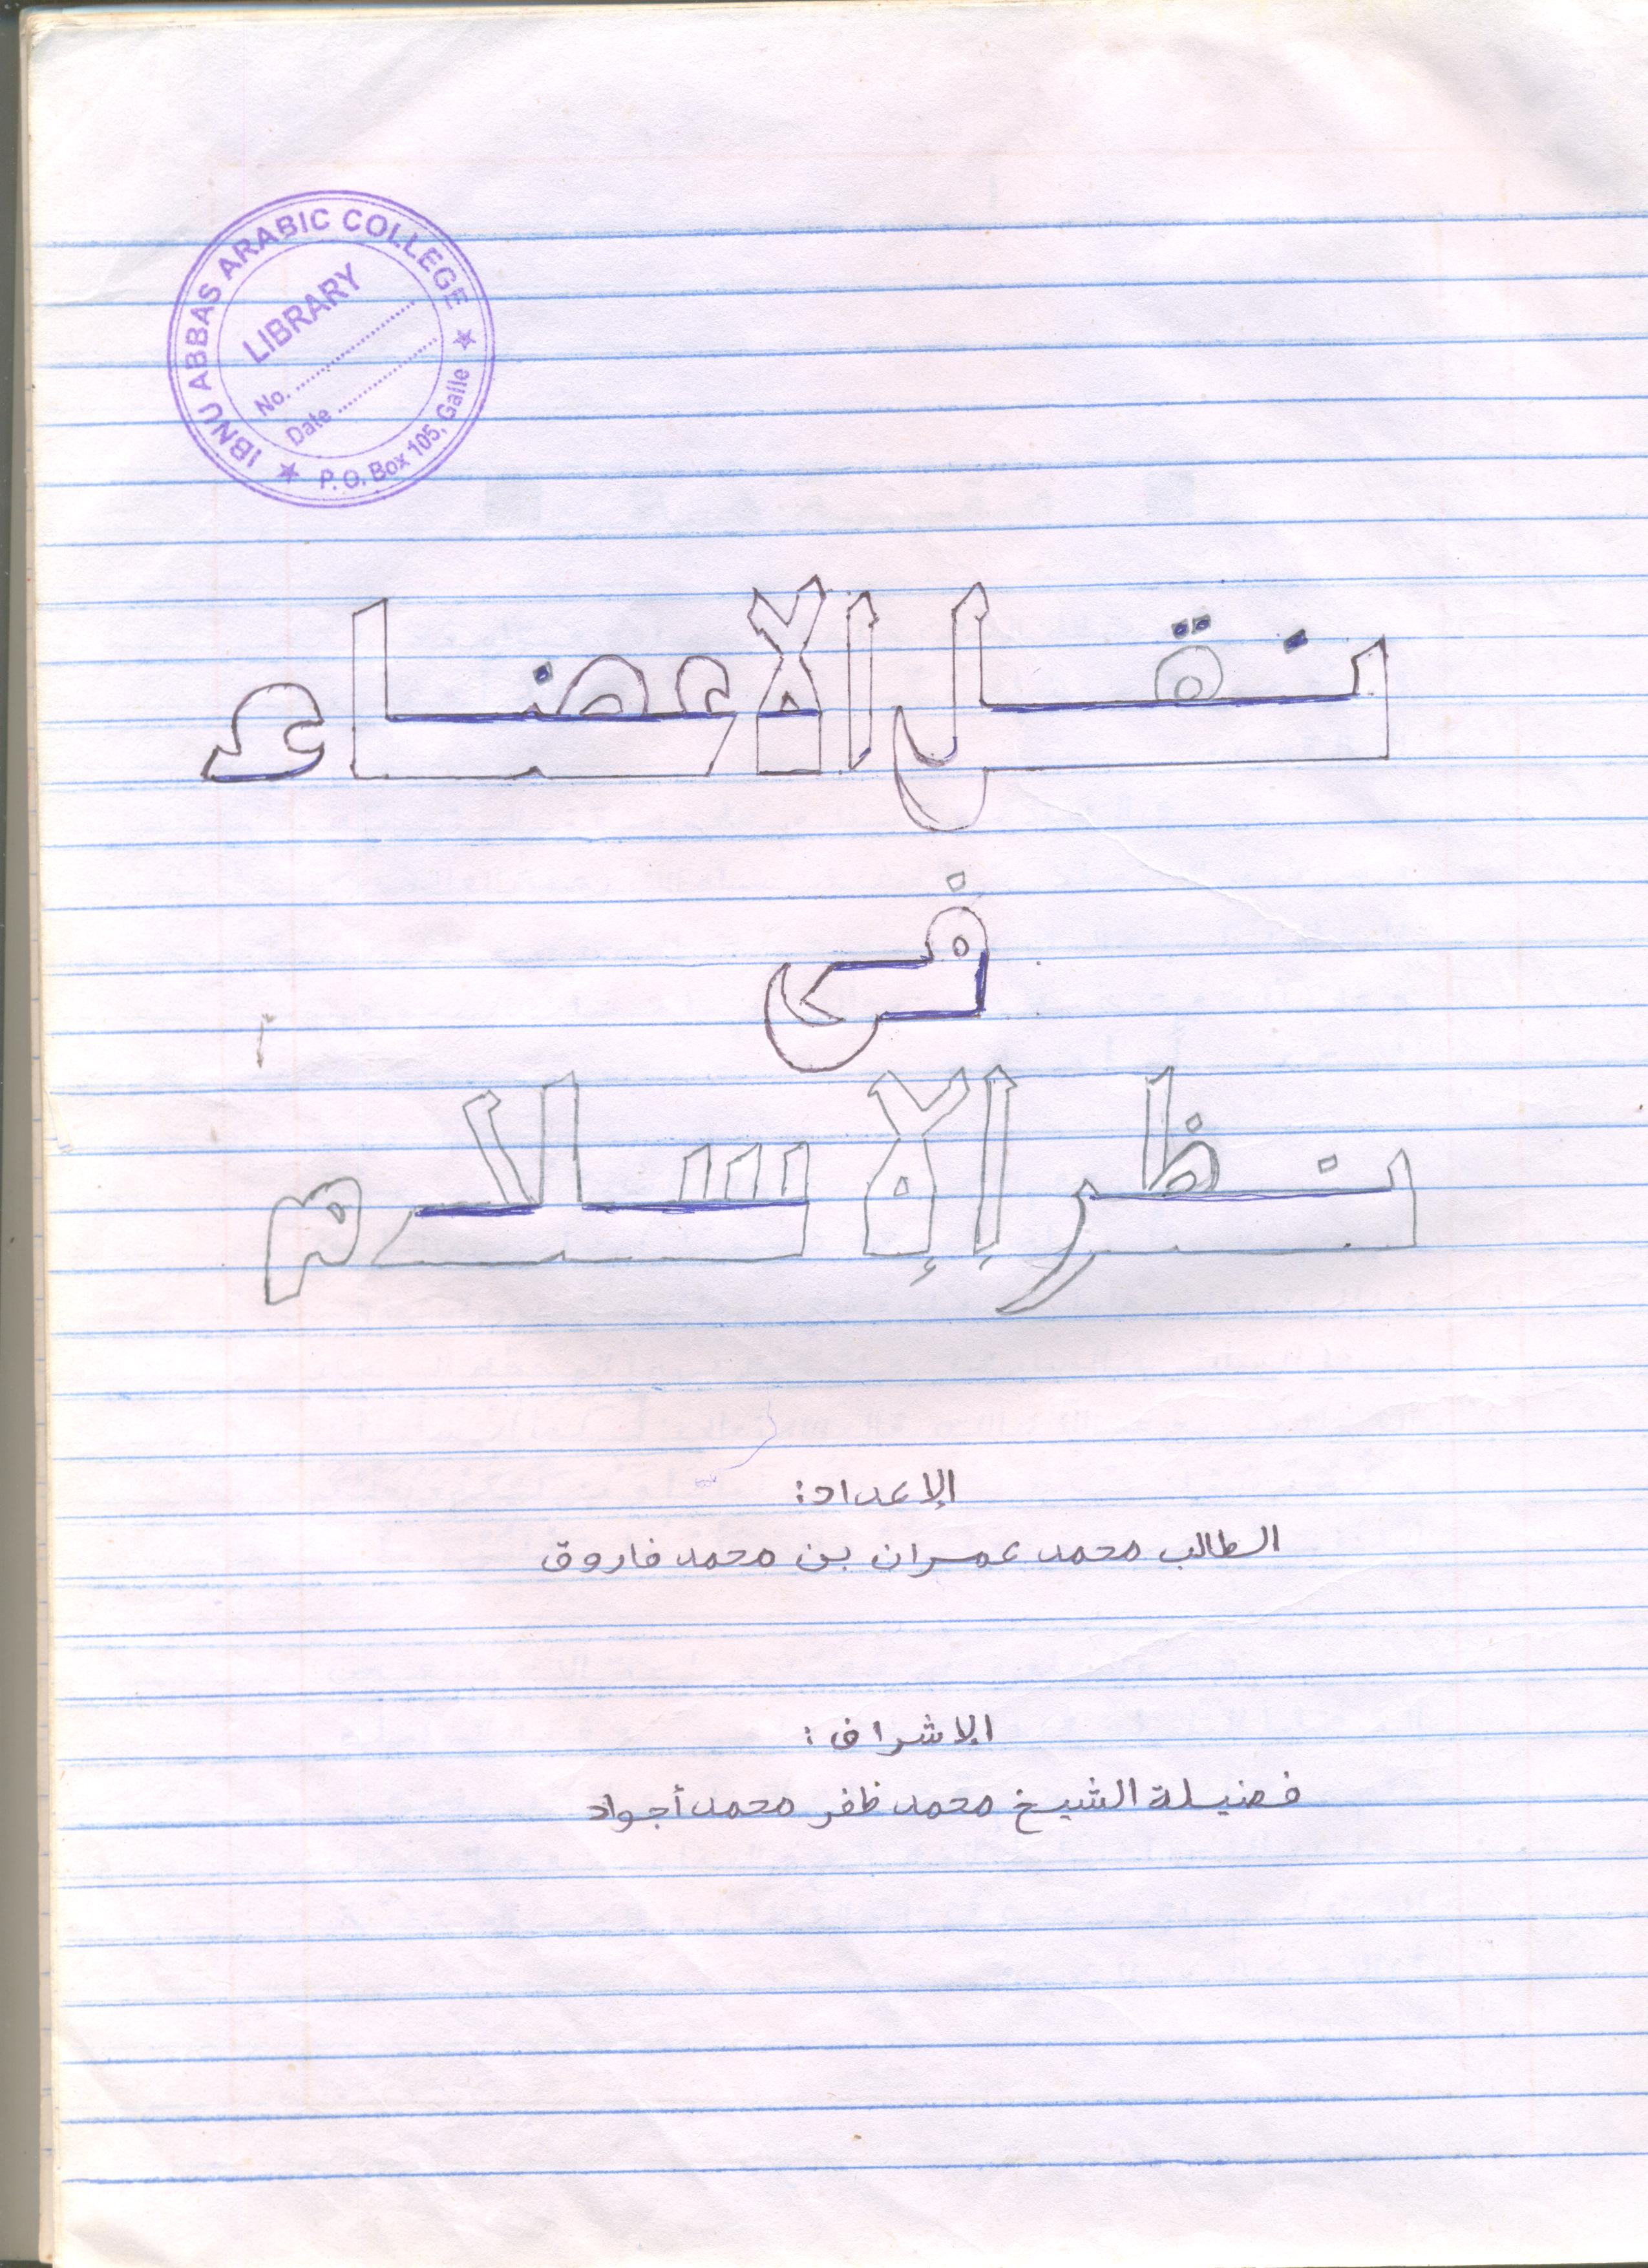 IBNU ABBAS ARABIC COLLEGE
LIBRARY
No. ....................
Date ....................
P. O. Box 105, Galle
نقل الأعضاء
في
نظر الإسلام
الإعداد:
الطالب محمد عمران بن محمد فاروق
الإشراف:
فضيلة الشيخ محمد ظفر محمد أجواد